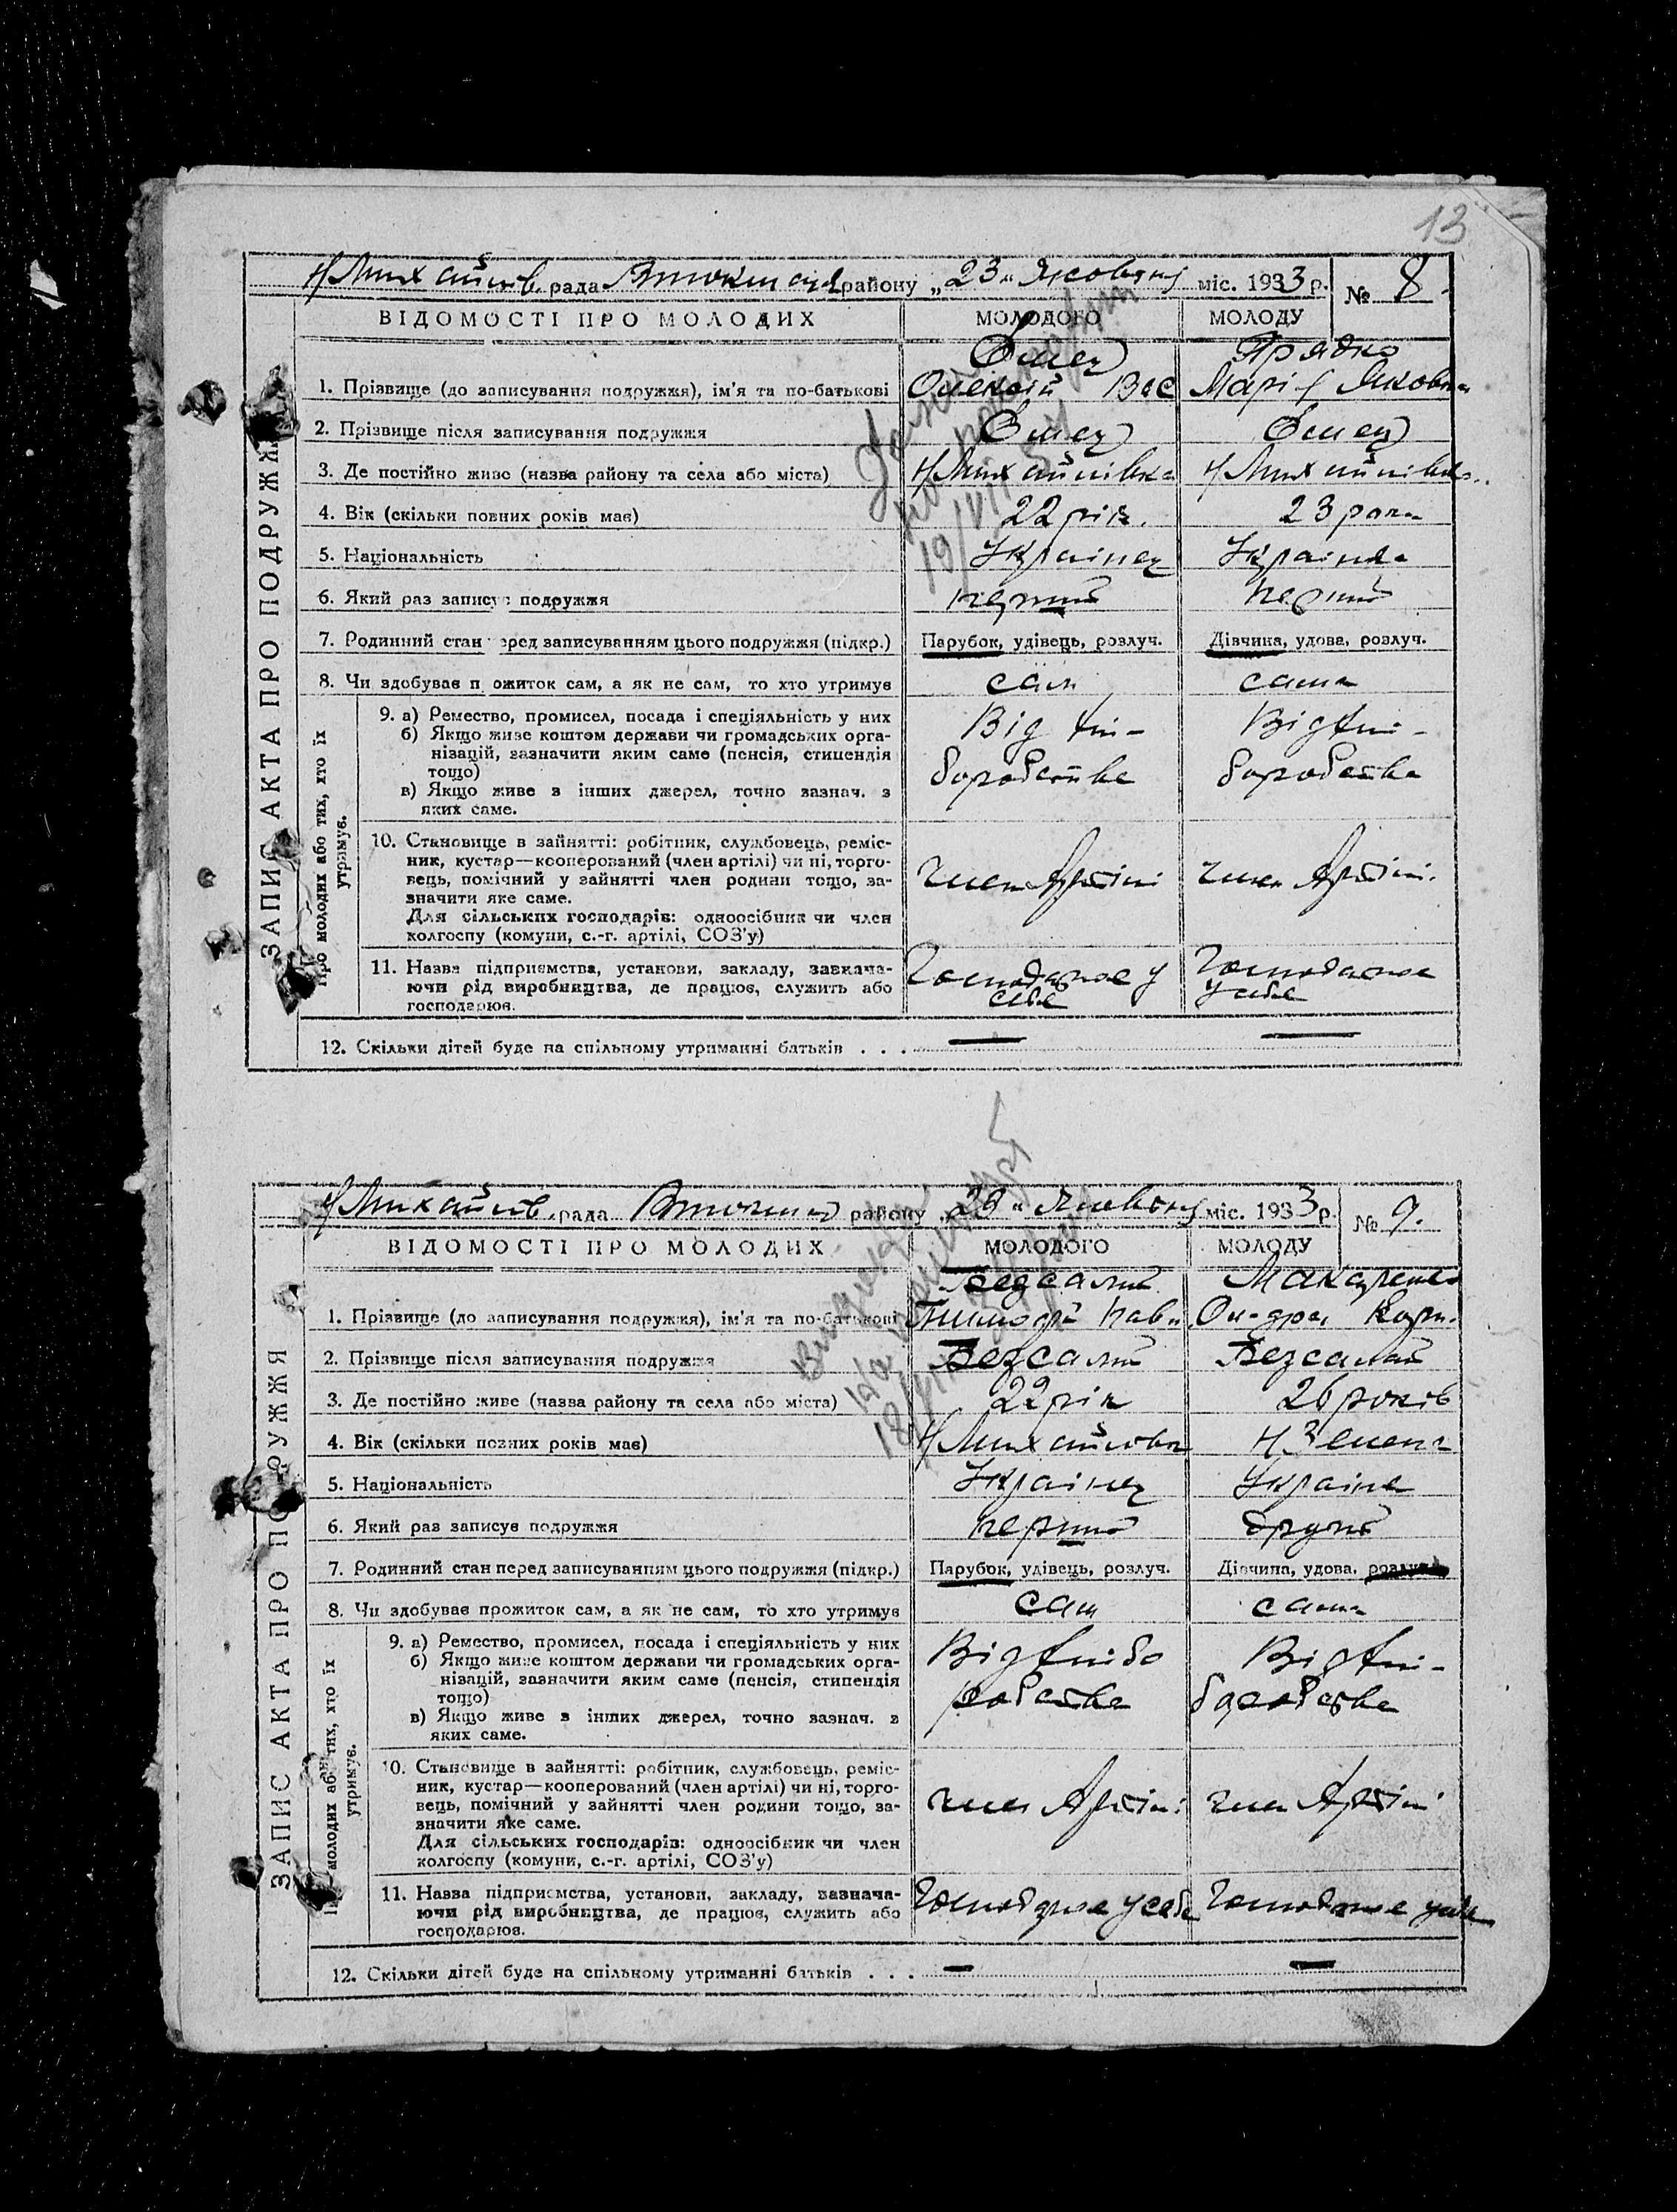 13
рада району „23“ міс. 1933 р. № 8.
ВІДОМОСТІ ПРО МОЛОДИХ МОЛОДОГО МОЛОДУ
1. Прізвище (до записування подружжя), ім'я та по-батькові Олексій Вас Марія Яковна
2. Прізвище після записування подружжя
3. Де постійно живе (назва району та села або міста) Н Михайлівка Н Михайлівка
4. Вік (скільки повних років має) 22 рік. 23 роки
5. Національність Українец Українка
6. Який раз записує подружжя перший перший
7. Родинний стан перед записуванням цього подружжя (підкр.) Парубок, удівець, розлуч. Дівчина, удова, розлуч.
8. Чи здобуває прожиток сам, а як не сам, то хто утримує сам сама
ЗАПИС АКТА ПРО ПОДРУЖЖЯ
Про молодих або тих, хто їх утримує.
9. а) Ремество, промисел, посада і спеціяльність у них
б) Якщо живе коштом держави чи громадських орга-
нізацій, зазначити яким саме (пенсія, стипендія
тощо)
в) Якщо живе з інших джерел, точно зазнач. з
яких саме.
Від хлі-
боробства
Від хлі-
боробства
10. Становище в зайнятті: робітник, службовець, реміс-
ник, кустар—кооперований (член артілі) чи ні, торго-
вець, помічний у зайнятті член родини тощо, за-
значити яке саме.
Для сільських господарів: одноосібник чи член
колгоспу (комуни, с.-г. артілі, СОЗ'у)
член Артілі член Артілі.
11. Назва підприємства, установи, закладу, зазнача-
ючи рід виробництва, де працює, служить або
господарює.
Господарює у
себе
Господарює
у себе
12. Скільки дітей буде на спільному утриманні батьків . . . — —
рада району міс. 1933 р. № 9.
ВІДОМОСТІ ПРО МОЛОДИХ МОЛОДОГО МОЛОДУ
Безсалий Макаренко
1. Прізвище (до записування подружжя), ім'я та по-батькові Тимофій Пав
2. Прізвище після записування подружжя Безсалий Безсалий
3. Де постійно живе (назва району та села або міста) 22 рік 26 років
4. Вік (скільки повних років має) Н Михайловка
5. Національність Українец Україна
6. Який раз записує подружжя перший другий
7. Родинний стан перед записуванням цього подружжя (підкр.) Парубок, удівець, розлуч. Дівчина, удова, розлуч.
8. Чи здобуває прожиток сам, а як не сам, то хто утримує сам сама
ЗАПИС АКТА ПРО ПОДРУЖЖЯ
молодих або тих, хто їх утримує.
9. а) Ремество, промисел, посада і спеціяльність у них
б) Якщо живе коштом держави чи громадських орга-
нізацій, зазначити яким саме (пенсія, стипендія
тощо)
в) Якщо живе з інших джерел, точно зазнач. з
яких саме.
Від хлібо
робства
Від хлі-
боробства
10. Становище в зайнятті: робітник, службовець, реміс-
ник, кустар—кооперований (член артілі) чи ні, торго-
вець, помічний у зайнятті член родини тощо, за-
значити яке саме.
Для сільських господарів: одноосібник чи член
колгоспу (комуни, с.-г. артілі, СОЗ'у)
член Артілі член Артілі
11. Назва підприємства, установи, закладу, зазнача-
ючи рід виробництва, де працює, служить або
господарює.
Господарює у себе Господарює у себе
12. Скільки дітей буде на спільному утриманні батьків . . . — —